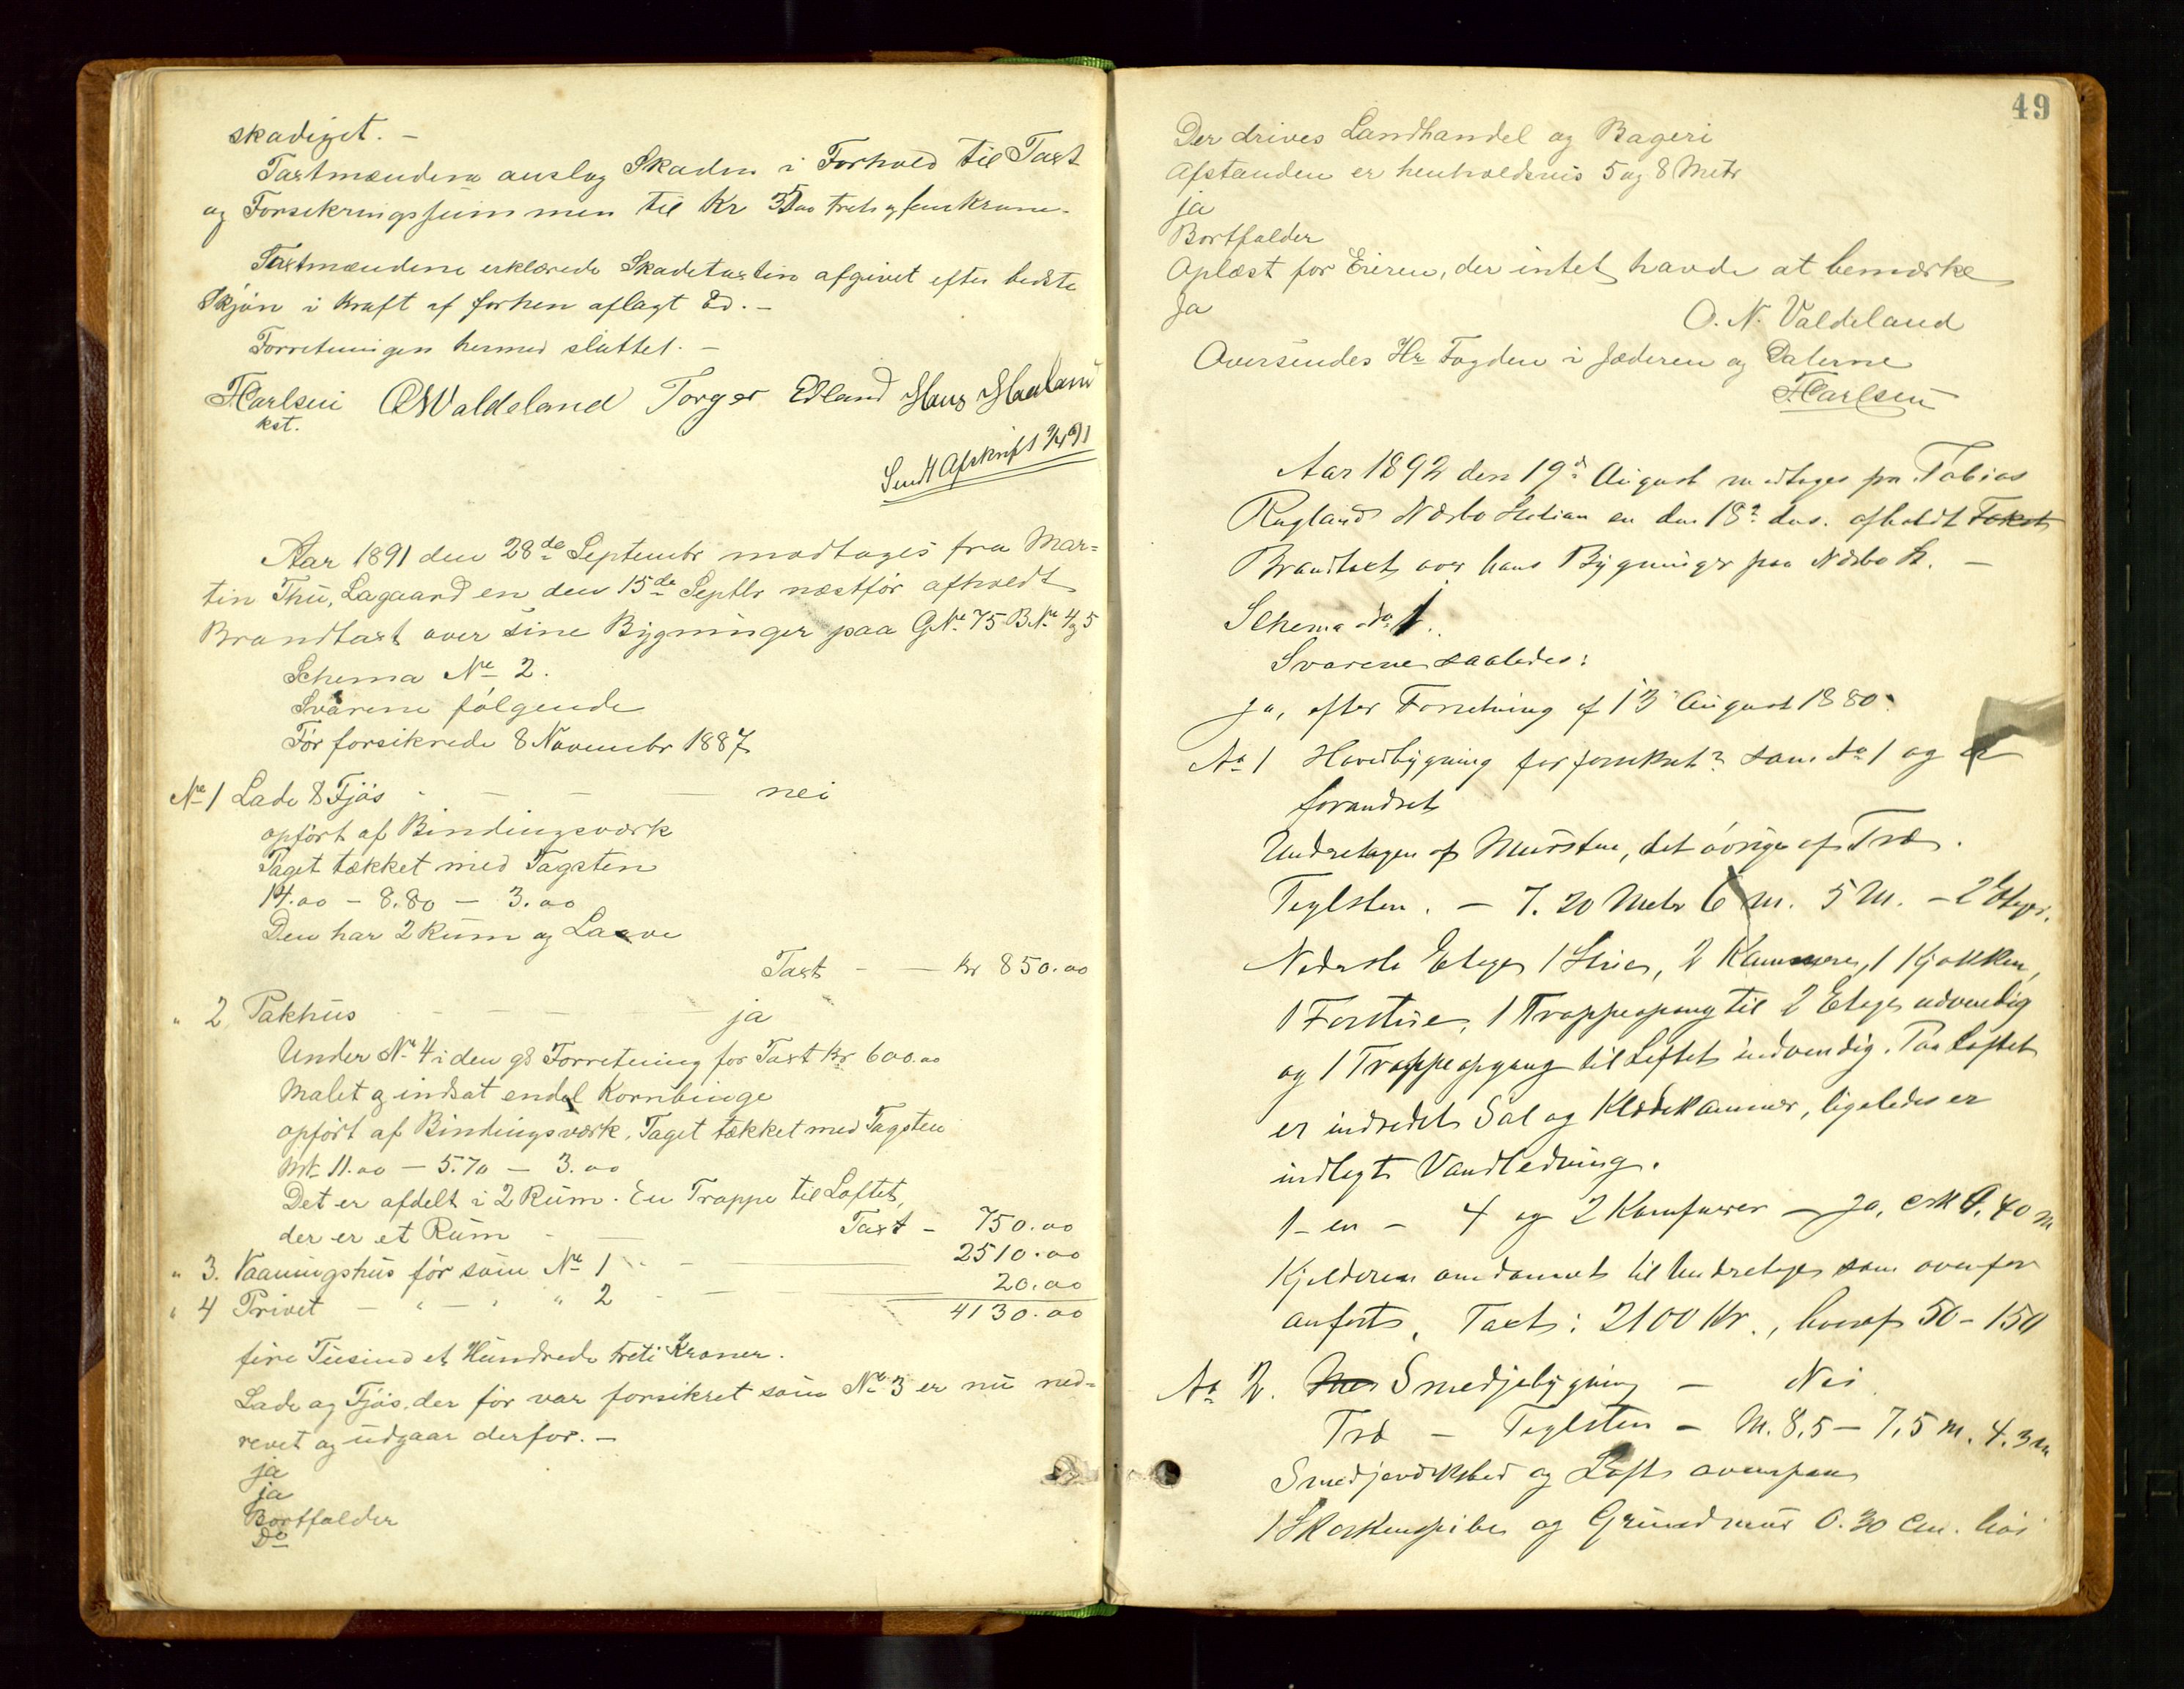 skadiget. -
Taxtmændene anslog Skaden i Forhold til Taxt
og Forsikringssummen til Kr 35oo treti og fem Kroner.
Taxtmændene erklærede Skadetaxten afgivet efter bedste
Skjøn i Kraft af forhen aflagt Ed. -
Forretningen hermed sluttet. -
FCarlsen OWaldeland Torger Edland Hans Haaland
kst.
Sendt Afskrift 91
Aar 1891 den 28de Septembr modtages fra Mar=
tin Thu, Lagaard en den 15de Septbr næstfør afholdt
Brandtaxt over sine Bygninger paa GNo 75 BNo 4 og 5
Schema No 2.
Svarene følgende
Før forsikrede 8 Novembr 1887
No 1 Lade & Fjøs - - - - nei
opført af Bindingsværk
Taget tækket med Tagsten
14.00 - 8.80 - 3.00
Den har 2 Rum og Laave
Taxt - - Kr 850.00
" 2 Pakhus - - - - ja
Under No 4 i den gs Forretning for Taxt Kr 600.00
Malet og indsat endel Kornbinge
opført af Bindingsværk. Taget tækket med Tagsten
Mt. 11.00 - 5.70 - 3.00
Det er afdelt i 2 Rum. En Trappe til Loftet,
der er et Rum - - Taxt - 750.00
" 3. Vaaningshus før som No 1 - - 2510.00
" 4 Privet - " - " " 2 - - 20.00
4130.00
fire Tusind et Hundrede treti Kroner.
Lade og Fjøs, der før var forsikret som No 3 er nu ned=
revet og udgaar derfor. -
ja
ja
Bortfalder
Do
49
Der drives Landhandel og Bageri
Afstanden er henholdsvis 5 og 8 Metr
ja
Bortfalder
Oplæst for Eieren, der intet havde at bemærke
Ja
O. N. Valdeland
Oversendes Hr Fogden i Jæderen og Dalerne
FCarlsen
Aar 1892 den 19de August modtages fra Tobias
Rugland Nærbo Station en den 18de ds. afholdt Takst
Brandtakt over hans Bygninger paa Nærbo St. -
Schema No 1.
Svarene saaledes:
Ja, efter Forretning af 13 August 1880.
No 1 Hovedbygning før forsikret som No 1 og er
forandret
Underetagen af Mursten, det øvrige af Træ.
Teglsten. - 7.20 Metr 6 m. 5 M. - 2 Etager.
Nederste Etage 1 Stue, 2 Kammere, 1 Kjøkken,
1 Forstue, 1 Trappeopgang til 2 Etage udvendig
og 1 Trappeopgang til Loftet indvendig. Paa Loftet
er indredet Sal og Klædekammer, ligeledes er
indlagt Vandledning.
1 - en - 4 og 2 Komfurer - Ja, 0.40 m
Kjelderen omdannet til Underetage som ovenfor
anført. Taxt: 2100 Kr., hvoraf 50 - 150
No 2. Smedjebygning - Nei
Træ - Teglsten - M. 8,5 - 7,5 m. 4.3 m
Smedjeværksted og Loft ovenpaa
1 Skorstenspibe og Grundmur 0.30 Cm. høi